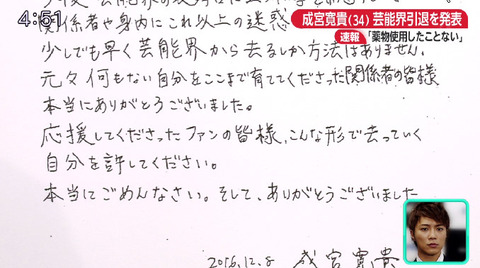 4:51
成宮寛貴(34)芸能界引退を発表
速報 「薬物使用したことない」
関係者や身内にこれ以上の迷惑
少しでも早く芸能界から去るしか方法はありません。
元々何もない自分をここまで育ててくださった関係者の皆様
本当にありがとうございました。
応援してくださったファンの皆様、こんな形で去っていく
自分を許してください。
本当にごめんなさい。そして、ありがとうございました
2016.12.8 成宮寛貴